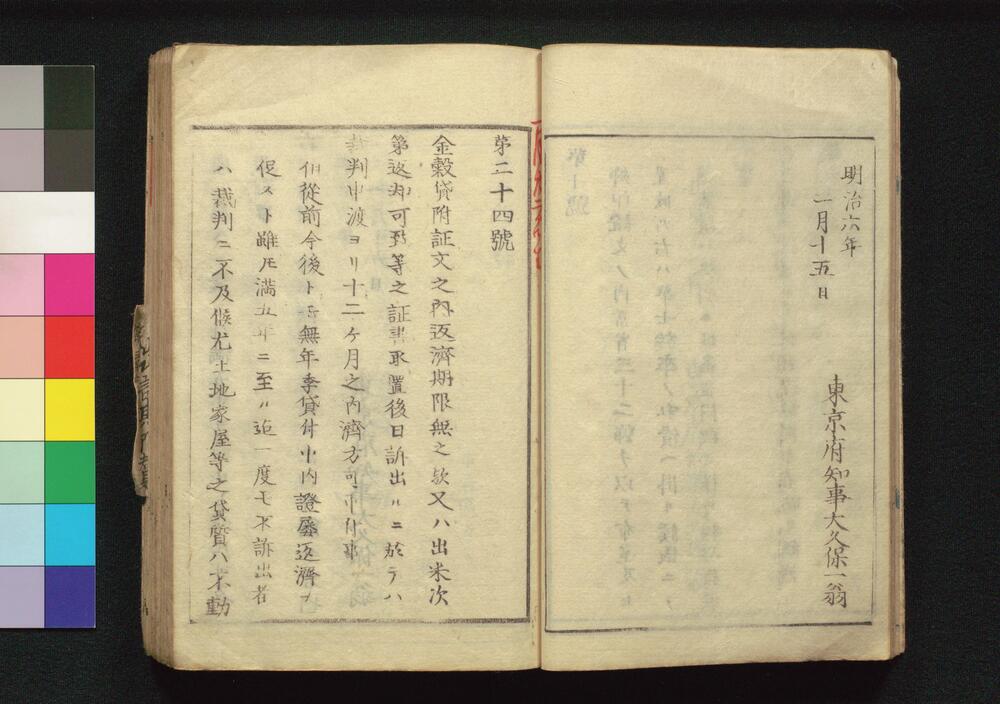 明治六年
一月十五日
東京府知事大久保一翁
第二十四號
金穀貸附証文之內返濟期限無之欵又ハ出米次
第返却可致等之証書取置後日訴出ルニ於テハ
裁判申渡ヨリ十二ヶ月之內濟方可申付事
但從前今後トモ無年季貸付中內證ニ返濟ヲ
促スト雖モ満五年ニ至ル迄一度モ不訴出者
ハ裁判ニ不及候尤土地家屋等之貸質ハ不動